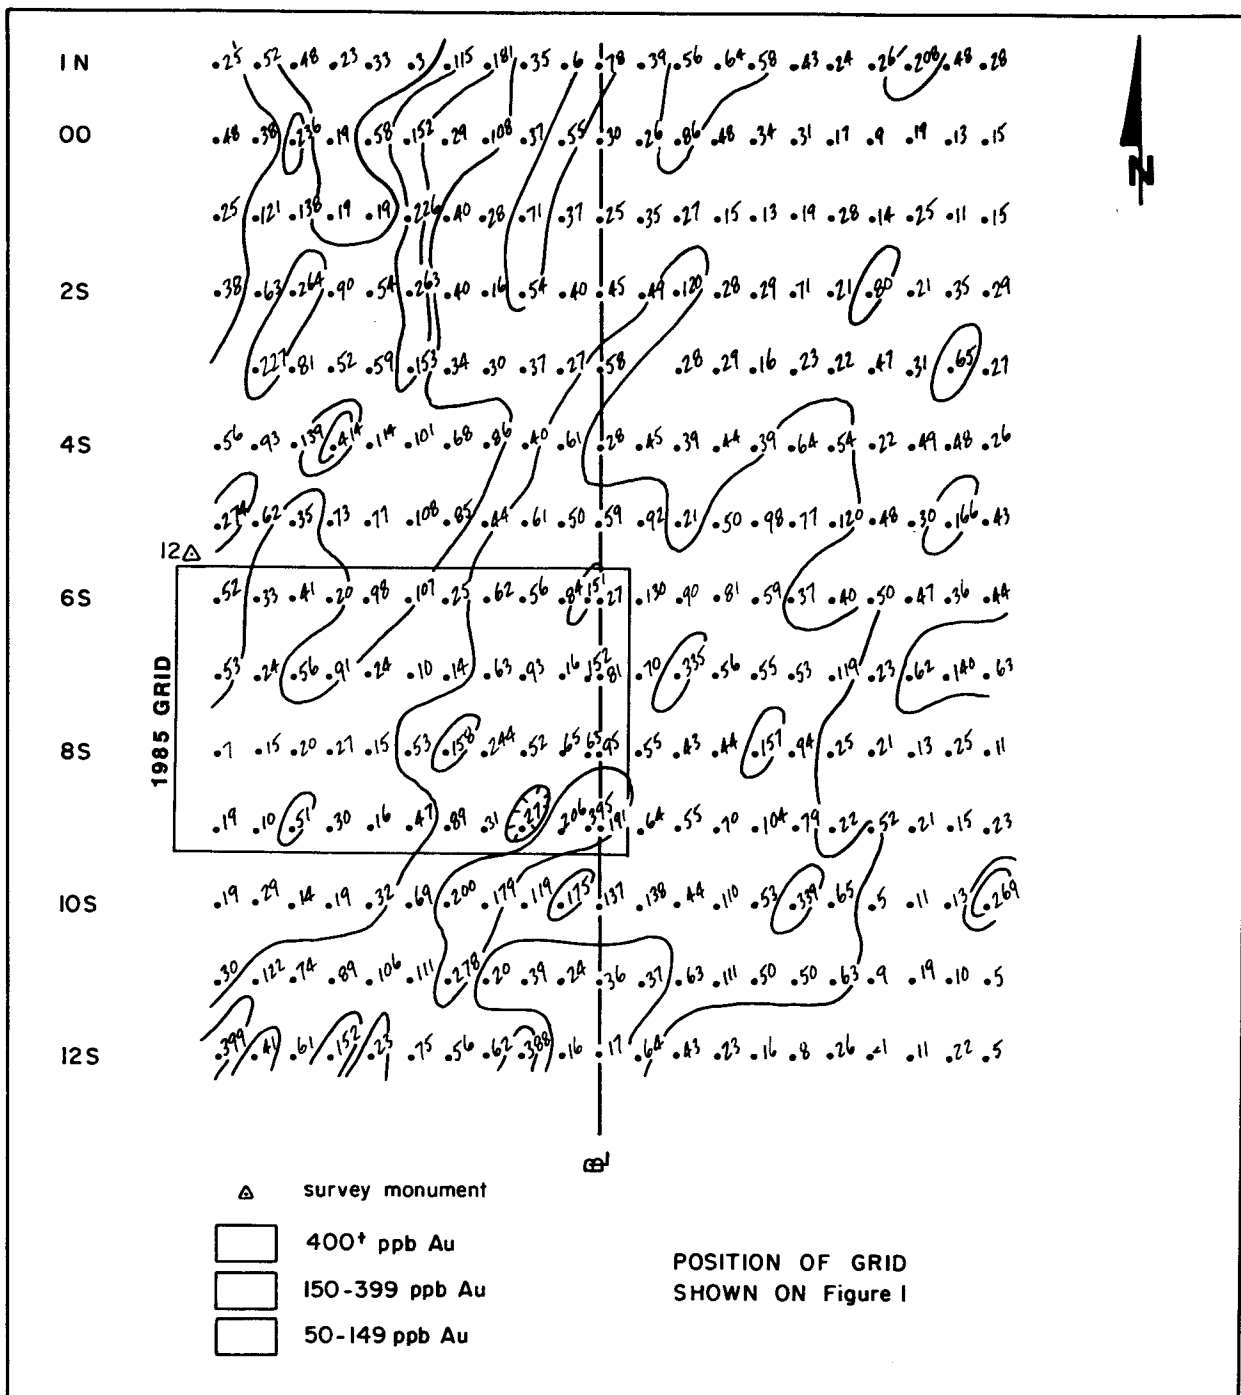 1N .25 .52 .48 .23 .33 .3 .115 .181 .35 .6 .78 .39 .56 .64 .58 .43 .24 .26 .208 .48 .28
00 .48 .38 .236 .19 .58 .152 .29 .108 .37 .55 .30 .26 .86 .48 .34 .31 .17 .9 .19 .13 .15
.25 .121 .138 .19 .19 .226 .40 .28 .71 .37 .25 .35 .27 .15 .13 .19 .28 .14 .25 .11 .15
2S .38 .63 .264 .90 .54 .263 .40 .16 .54 .40 .45 .49 .120 .28 .29 .71 .21 .80 .21 .35 .29
.227 .81 .52 .59 .153 .34 .30 .37 .27 .58 .28 .29 .16 .23 .22 .47 .31 .65 .27
4S .56 .93 .139 .414 .114 .101 .68 .86 .40 .61 .28 .45 .39 .44 .39 .64 .54 .22 .49 .48 .26
.274 .62 .35 .73 .77 .108 .85 .44 .61 .50 .59 .92 .21 .50 .98 .77 .120 .48 .30 .166 .43
12
6S .52 .33 .41 .20 .98 .107 .25 .62 .56 .84 .151 .27 .130 .90 .81 .59 .37 .40 .50 .47 .36 .44
.53 .24 .56 .91 .24 .10 .14 .63 .93 .16 .152 .81 .70 .335 .56 .55 .53 .119 .23 .62 .140 .63
1985 GRID
8S .7 .15 .20 .27 .15 .53 .158 .244 .52 .65 .65 .95 .55 .43 .44 .157 .94 .25 .21 .13 .25 .11
.19 .10 .51 .30 .16 .47 .89 .31 .27 .206 .395 .191 .64 .55 .70 .104 .79 .22 .52 .21 .15 .23
10S .19 .29 .14 .19 .32 .69 .200 .179 .119 .175 .137 .138 .44 .110 .53 .339 .65 .5 .11 .13 .269
.30 .122 .74 .89 .106 .111 .278 .20 .39 .24 .36 .37 .63 .111 .50 .50 .63 .9 .19 .10 .5
12S .399 .41 .61 .152 .23 .75 .56 .62 .388 .16 .17 .64 .43 .23 .16 .8 .26 .<1 .11 .22 .5
N
survey monument
400+ ppb Au
150-399 ppb Au
50-149 ppb Au
POSITION OF GRID
SHOWN ON Figure 1